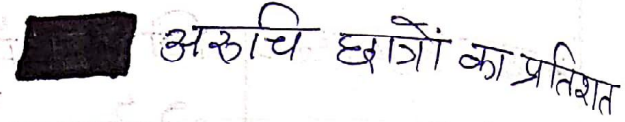 अरुचि छात्रों का प्रतिशत